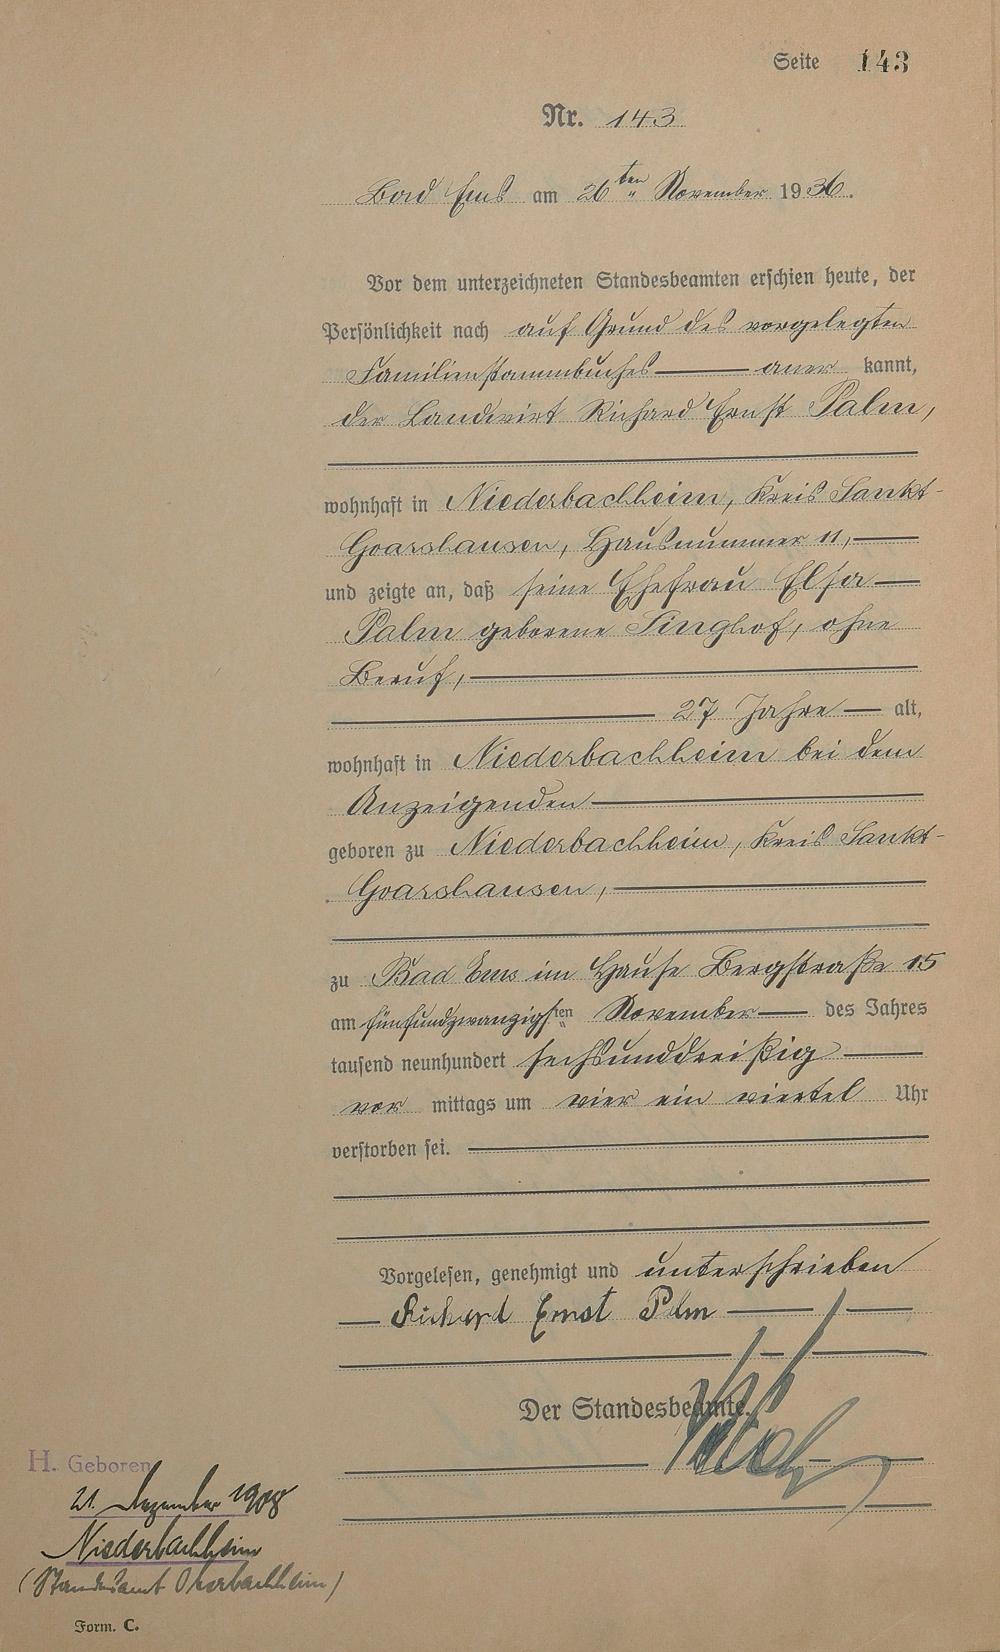 Seite 143
Nr. 143
Bad Ems am 26ten November 1936.
Vor dem unterzeichneten Standesbeamten erschien heute, der
Persönlichkeit nach auf Grund des vorgelegten
Familienstammbuches aner kannt,
der Landwirt Richard Ernst Palm,
wohnhaft in Niederbachheim, Kreis Sankt-
Goarshausen, Hausnummer 11,
und zeigte an, daß seine Ehefrau Elsa
Palm geborene Singhof, ohne
Beruf,
27 Jahre alt,
wohnhaft in Niederbachheim bei dem
Anzeigenden
geboren zu Niederbachheim, Kreis Sankt-
Goarshausen,
zu Bad Ems im Hause Bergstraße 15
am fünfundzwanzigsten November des Jahres
tausend neunhundert sechsunddreißig
vor mittags um vier ein viertel Uhr
verstorben sei.
Vorgelesen, genehmigt und unterschrieben
Richard Ernst Palm
Der Standesbeamte.
H. Geboren
21. Dezember 1908
Niederbachheim
(Standesamt Oberbachheim)
Form. C.